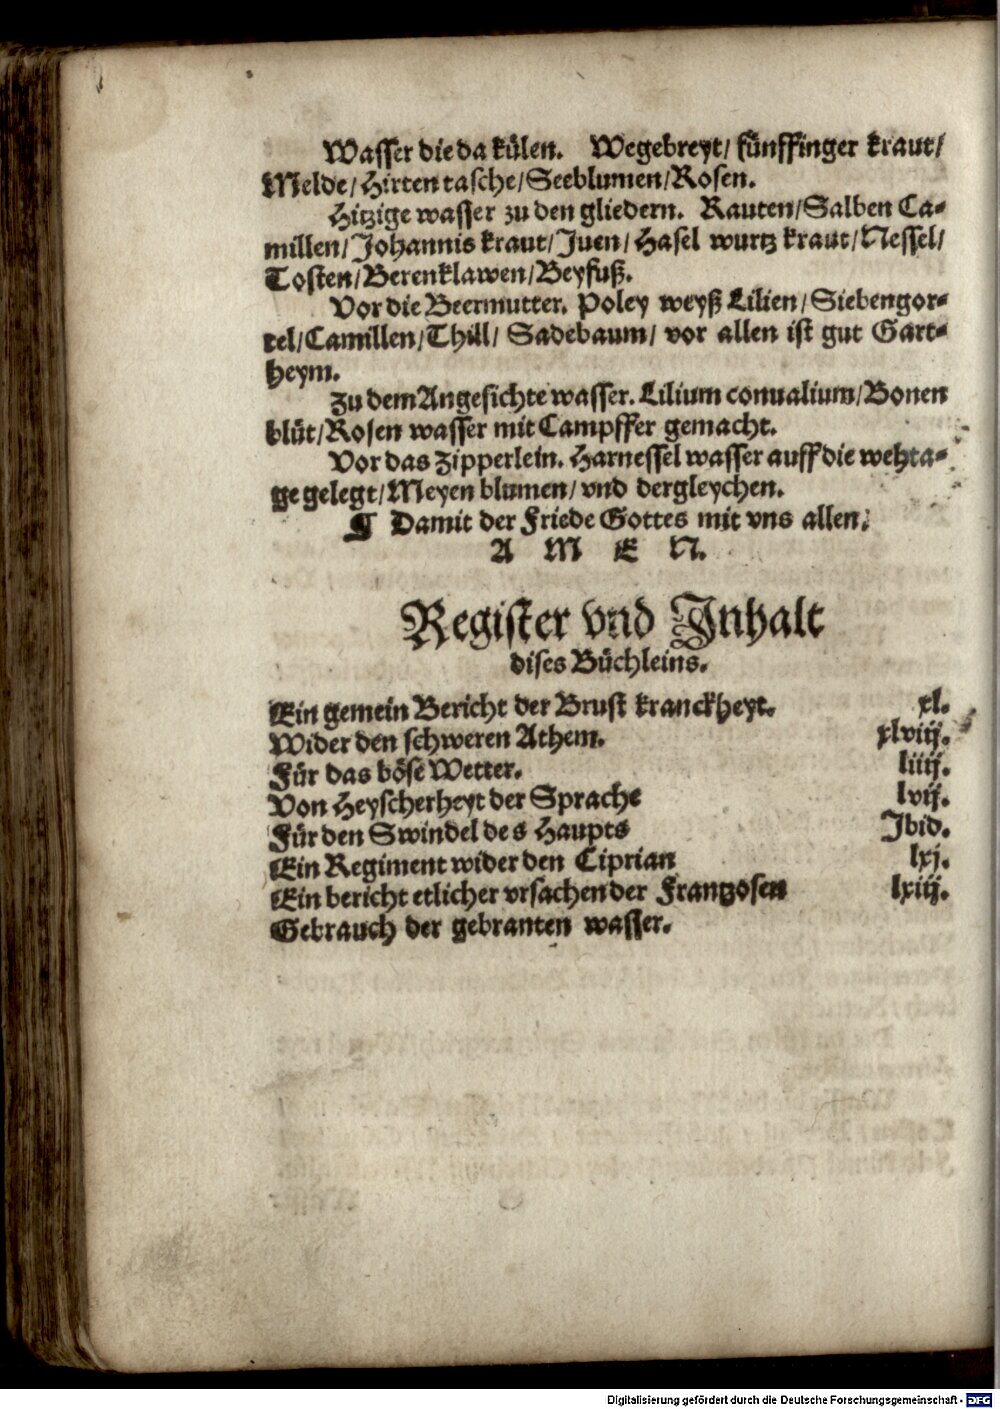 Wasser die da külen. Wegebreyt/ fünffinger kraut/
Melde/ Hirten tasche/ Seeblumen/ Rosen.
Hitzige wasser zu den gliedern. Rauten/ Salben Ca-
millen/ Johannis kraut/ Iuen/ Hasel wurtz kraut/ Nessel/
Tosten/ Berenklawen/ Beyfuß.
Vor die Beermutter. Poley weyß Lilien/ Siebengor-
tel/ Camillen/ Thill/ Sadebaum/ vor allen ist gut Gart-
heym.
Zu dem Angesichte wasser. Lilium conualium/ Bonen
blüt/ Rosen wasser mit Campffer gemacht.
Vor das Zipperlein. Harnessel wasser auff die wehta-
ge gelegt/ Meyen blumen/ vnd dergleychen.
¶ Damit der Friede Gottes mit vns allen.
A M E N.
Register vnd Inhalt
dises Büchleins.
Ein gemein Bericht der Brust kranckheyt. xl.
Wider den schweren Athem. xlviij.
Für das böse Wetter. liiij.
Von Heyscherheyt der Sprache lvij.
Für den Swindel des Haupts Ibid.
Ein Regiment wider den Ciprian lxj.
Ein bericht etlicher vrsachen der Frantzosen lxiij.
Gebrauch der gebranten wasser.
Digitalisierung gefördert durch die Deutsche Forschungsgemeinschaft - DFG